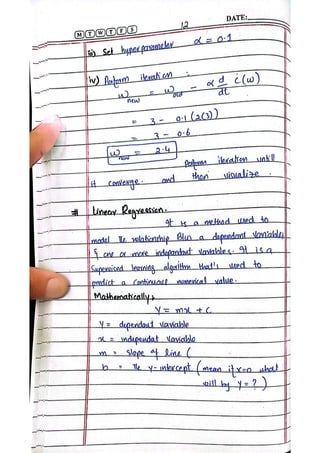 DATE:
M T W T F S
12
iii) Set hyperparameter α = 0.1
iv) Perform iteration :
w new = w old - α d/dt L(w)
= 3 - 0.1 (2(3))
= 3 - 0.6
w new = 2.4
Perform iteration untill
it converge. and then visualize.
# Linear Regression.
It is a method used to
model the relationship b/w a dependent variables
& one or more independant variables. It is a
Supervised learning algorithm that's used to
predict a continuous numerical value.
Mathematically,
Y = mx + c
Y = dependant variable
x = independat variable
m = slope of line (
b = The y-intercept. (mean if x=0 what
will by y = ?)